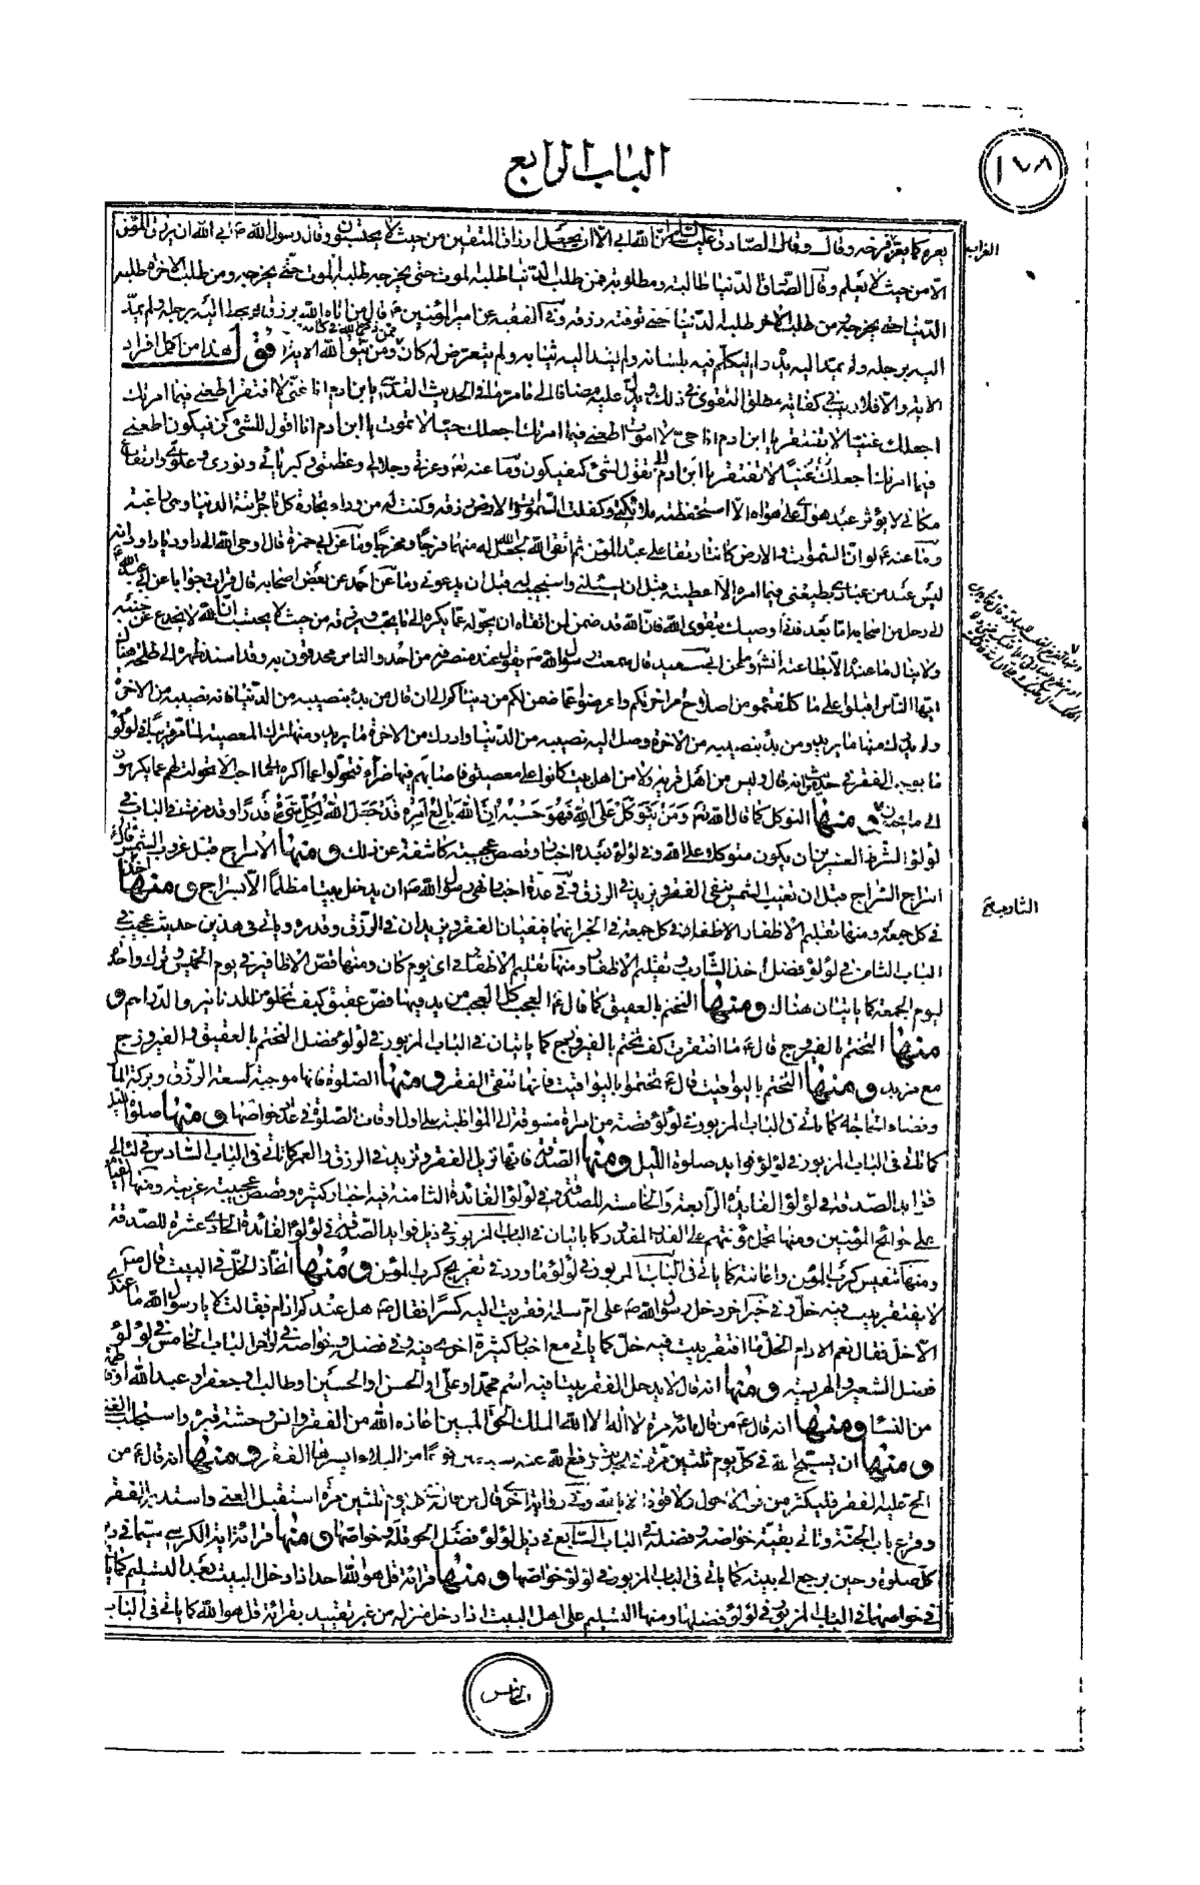 ١٧٨
الباب الرابع
يعره كما يعره فرخه وقال وقال الصادق عليه السلام ان الله ابى الا ان يجعل ارزاق المتقين من حيث لا يحتسبون وقال رسول الله ص ابى الله ان يرزق المؤمن
الغراب
الا من حيث لا يعلم وقال الصادق الدنيا طالبة ومطلوبة فمن طلب الدنيا طلبه الموت حتى يخرجه ومن طلب الاخرة طلبته
الدنيا حتى توفيه رزقه وفى الفقيه عن امير المؤمنين قال من اتاه الله برزق لم يخط اليه برجله ولم يمد
اليه يده ولم يتكلم فيه بلسانه ولم يشد اليه ثيابه ولم يتعرض له كان ومن يتق الله الاية اقول هذا من اكمل افراد
الاية والا فلا ريب فى كفاية مطلق التقوى فى ذلك ويدل عليه مضافا الى الحديث القدسى يا بن ادم انا غنى لا افتقر اطعنى فيما امرتك
اجعلك غنيا لا تفتقر يا ابن ادم انا حى لا اموت اطعنى فيما امرتك اجعلك حيا لا تموت يا ابن ادم انا اقول للشىء كن فيكون اطعنى
فيما امرتك اجعلك تقول لشىء كن فيكون وما عنه تعالى وعزتى وجلالى وعظمتى وكبريائى ونورى وعلوى وارتفاع
مكانى لا يؤثر عبد هواى على هواه الا استحفظته ملائكتى وكفلت السموات والارض رزقه وكنت له من وراء تجارة كل تاجر واتته الدنيا وهى راغمة
وما عنه لو ان السموات والارض كانتا رتقا على عبد المؤمن ثم اتقى الله لجعل الله له منهما فرجا ومخرجا وما عن ابى حمزة قال اوحى الله الى داود يا داود انه
ليس عبد من عبادى يطيعنى فيما امره الا اعطيته قبل ان يسئلنى واستجيب له قبل ان يدعونى وما عن احمد عن بعض اصحابه قال قرات جوابا عن ابى عبد الله
الى رجل من اصحابه اما بعد فانى اوصيك بتقوى الله فان الله قد ضمن لمن اتقاه ان يحوله عما يكره الى ما يحب ويرزقه من حيث لا يحتسب ان الله لا يخدع عن جنته
ولا ينال ما عنده الا بطاعته انشاء الله وما عن ابى سعيد قال سمعت رسول الله ص يقول عند منصرفه من احد والناس محدقون به وقد اسند ظهره الى طلحة هناك
ايها الناس اقبلوا على ما كلفتموه من اصلاح اخرتكم واعرضوا عما ضمن لكم من دنياكم الى ان قال من بدء بنصيبه من الدنيا فاته نصيبه من الاخرة
ولم يدرك منها ما يريد ومن بدء بنصيبه من الاخرة وصل اليه نصيبه من الدنيا وادرك من الاخرة ما يريد ومنها ترك المعصية لما مر فى لؤلؤ
ما يوجب الفقر فى حديث انه قال وليس من اهل قرية ولا من اهل بيت كانوا على معصيتى فاصابهم فيها ضراء فتحولوا عما اكره الى ما احب الا تحولت لهم عما يكرهون
الى ما يحبون ومنها التوكل كما قال الله تعالى وَمَنْ يَتَوَكَّلْ عَلَى اللهِ فَهُوَ حَسْبُهُ اِنَّ اللهَ بَالِغُ اَمْرِهِ قَدْ جَعَلَ اللهُ لِكُلِّ شَىْءٍ قَدْرًا وقد مر فى الباب فى
لؤلؤ الشرط العشرين ان يكون متوكلا على الله وفى لؤلؤ بعده اخبار وقصص عجيبة كاشفة عن ذلك ومنها الاسراج قبل غروب الشمس قال
اسراج السراج قبل ان تغيب الشمس ينفى الفقر ويزيد فى الرزق وفى عدة اخبار نهى رسول الله ص ان يدخل بيتا مظلما الا بسراج ومنها اخذ
الشارب
فى كل جمعة ومنها تقليم الاظفار الاظفار فى كل جمعة فى الخبر انهما ينفيان الفقر ويزيدان فى الرزق وقدره وياتى فى هذين حديث عجيب فى
الباب الثامن فى لؤلؤ فضل اخذ الشارب وتقليم الاظفار ومنها تقليم الاظفار فى اى يوم كان ومنها قص الاظافير فى يوم الخميس وترك واحدة
ليوم الجمعة كما ياتيان هناك ومنها التختم بالعقيق كما قال العجب كل العجب من يد فيها فص عقيق كيف تخلو من الدنانير والدراهم و
منها التختم بالفيروزج قال ما افتقرت كف تختم بالفيروزج كما ياتيان فى الباب المزبور فى لؤلؤ فضل التختم بالعقيق والفيروزج
مع مزيد ومنها التختم باليواقيت قال تختموا باليواقيت فانها تنفى الفقر ومنها الصلوة فانها موجبة لسعة الرزق وبركة المال
وقضاء الحاجة كما ياتى فى الباب المزبور فى لؤلؤ قصة من اسرة مشوقة الى المواظبة على اول اوقات الصلوة فى عد خواصها ومنها صلوة الليل
كما ياتى فى الباب المزبور فى لؤلؤ فوايد صلوة الليل ومنها الصدقة فانها تزيل الفقر وتزيد فى الرزق والعمر كما ياتى فى الباب السادس فى لئالى
فوايد الصدقة فى لؤلؤ الفايدة الرابعة والخامسة للصدقة وفى لؤلؤ الفائدة الثامنة فيه اخبار كثيرة وقصص عجيبة غريبة ومنها القيام
على حوائج المؤمنين ومنها تحمل مؤنتهم على القدر المقدور كما ياتيان فى الباب المزبور فى ذيل فوايد الصدقة فى لؤلؤ الفائدة الحادى عشرة للصدقة
ومنها تنفيس كرب المؤمن واغاثته كما ياتى فى الباب المزبور فى لؤلؤ ما ورد فى تفريج كرب المؤمن ومنها اتخاذ الخل فى البيت قال ص
لا يفتقر بيت فيه خل وفى خبر اخر دخل رسول الله ص على ام سلمة فقربت اليه كسرا فقال ص هل عندك ادام فقالت لا يا رسول الله ما عندى
الا خل فقال نعم الادام الخل ما افتقر بيت فيه خل كما ياتى مع اخبار كثيرة اخرى فيه وفى فضل وخواصه فى اواخر الباب الخامس فى لؤلؤ
فضل الشعير والهريسة ومنها انه قال لا يدخل الفقر بيتا فيه اسم محمد او على او الحسن والحسين او طالب او جعفر او عبد الله او فاطمة
من النساء ومنها انه قال من قال مائة مرة لا اله الا الله الملك الحق المبين اعاذه الله من الفقر وانس وحشة قبره واستجلب الغنى
ومنها ان يسبح الله فى كل يوم ثلثين مرة دفع الله عنه سبعين نوعا من البلاء ايسرها الفقر ومنها انه قال من
الح عليه الفقر فليكثر من قول لا حول ولا قوة الا بالله وفى رواية اخرى قال من قالها فى يوم ثلثين مرة استقبل الغنى واستدبر الفقر
وقرع باب الجنة وياتى بقية خواصه وفضله فى الباب السابع فى ذيل لؤلؤ فضل الحوقلة وخواصها ومنها قرائة اية الكرسى سيما فى دبر
كل صلوة وحين يرجع الى بيته كما ياتى فى الباب المزبور فى لؤلؤ خواصها ومنها قرائة قل هو الله احد اذا دخل البيت بعد التسليم كما ياتى
فى خواصها فى الباب المزبور فى لؤلؤ فضلها ومنها التسليم على اهل البيت اذا دخل منزله من غير تقييد بقرائة قل هو الله كما ياتى فى الباب
الخامس